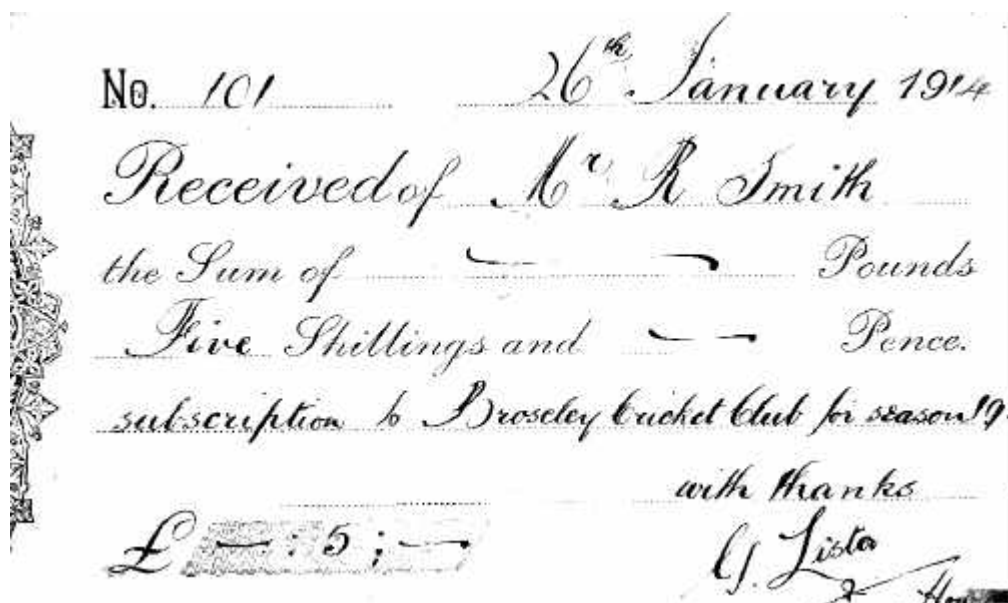 No. 101 26th January 1914
Received of Mr R Smith
the Sum of — — Pounds
Five Shillings and — — Pence.
subscription to Broseley Cricket Club for season 19
with thanks
£ — : 5 ; —
G. Lister
Hon